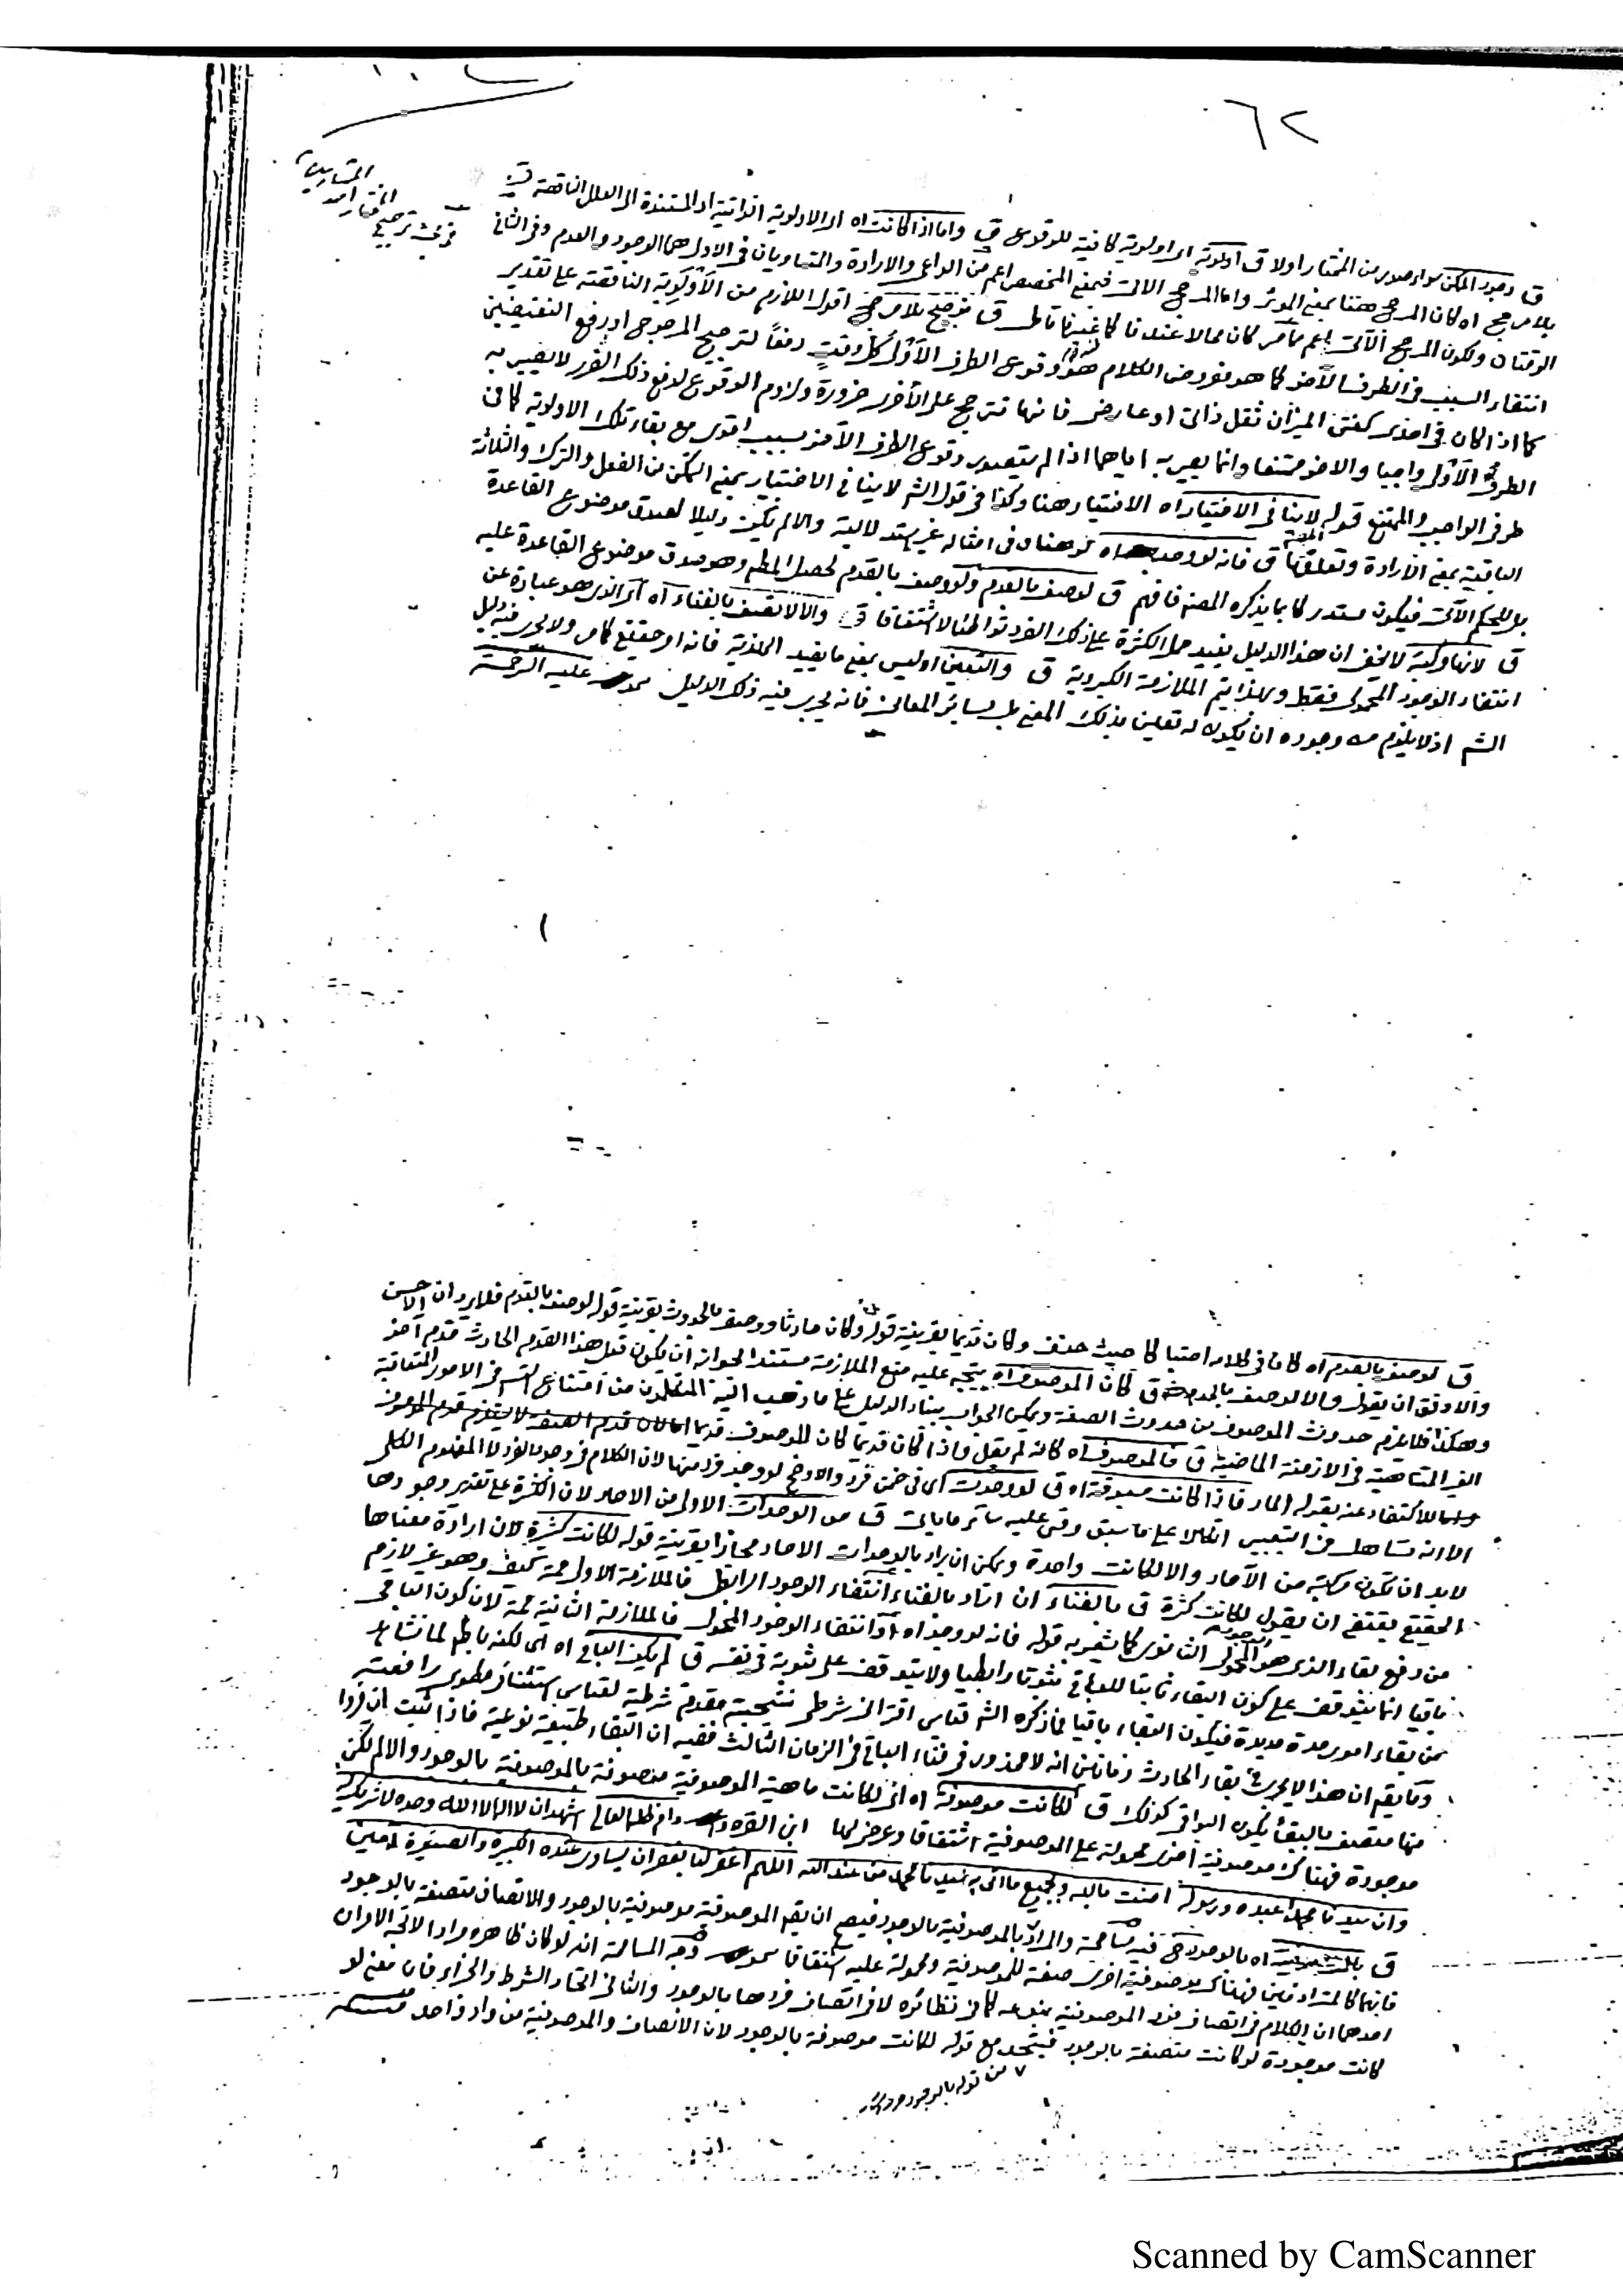 ٦٢
ق وجود الممكن سواء صدر من المختار اولا ق اولوية اى اولوية كافية للوقوع ق واما اذا كانت اه اى الاولوية الذاتية او المستندة الى العلل الناقصة
بلا مرجح اه كان المرجح هنا بمعنى المؤثر واما المرجح الآتى فبمعنى المخصص اعم من الداعى والارادة والمتساويان فى الاول هما الوجود والعدم وفى الثانى
الوقتان ولكون المرجح الآتى اعم مما مر كان محالا عندنا كما عندنا ق ترجيح بلا مرجح اقول اللازم من الاولوية الناقصة على تقدير
انتفاء السبب فى الطرف الآخر كما هو مفروض الكلام هو وقوع الطرف الاول كل وقت دفعا لترجيح المرجوح او رفع النقيضين
كما اذا كان فى احدى كفتى الميزان ثقل ذاتى او عارضى فانها تترجح على الأخرى ضرورة ولزوم الوقوع لدفع ذلك الضرر لا يصير به
الطرف الاول واجبا والآخر ممتنعا وانما يصير به اياهما اذا لم يتصور وقوع الطرف الآخر بسبب اقوى مع بقاء تلك الاولوية كما فى
طرفى الواجب والممتنع قوله لا ينافى الاختيار اه الاختيار هنا وكذا فى قول الش لا ينافى الاختيار بمعنى التمكن من الفعل والترك والثلاثة
الباقية بمعنى الارادة وتعلقها ق فانه لو وجد اه لو هنا وفى امثاله غير استدلالية والا لم تكن دليلا لصدق موضوع القاعدة
بل للحكم الآتى فيكون مستدركا بما يذكره المصنف فافهم ق لوصف بالقدم ولو وصف بالقدم لحصل المط وهو صدق موضوع القاعدة عليه
ق لانها مركبة لا يخفى ان هذا الدليل يفيد حمل الكثرة على ذلك الفرد تواطئا لا اشتقاقا ق والا لاتصف بالفناء اه اى الذى هو عبارة عن
انتفاء الوجود المحمولى فقط وبهذا يتم الملازمة الكبروية ق والتعين اوليس بمعنى ما يفيد الجزئية فانه امر حقيقى كامر ولا يجرى فيه دليل
الش اذ لا يلزم من وجوده ان يكون له تعين بذلك المعنى بل بسائر المعانى فانه يجرى فيه ذلك الدليل عليه الرحمة
ق لوصف بالقدم اه كان فى كلامه احتباكا حيث حذف وكان قديما بقرينة قوله وكان حادثا ووصف بالحدوث بقرينة قوله لوصف بالقدم فلا يرد ان الاحسن
والاوفق ان يقول والا لوصف بالحدوث ق كان الموصوف اه يتجه عليه منع الملازمة مستندا لجواز ان يكون قبل هذا القدم الحادث قدم آخر
وهكذا فلا يلزم حدوث الموصوف من حدوث الصفة ويمكن الجواب ببناء الدليل على ما ذهب اليه المتكلمون من امتناع التس فى الامور المتعاقبة
الغير المتناهية فى الازمنة الماضية ق فالموصوف اه كانه لم يقل واذا كان قديما كان الموصوف قديما
للاكتفاء عنه بقوله المار فاذا كانت مسبوقة اه ق لو وجدت اى فى ضمن فرد والاوضح لو وجد فرد منها لان الكلام فى وجود الفرد لا المفهوم الكلى
الا انه تساهل فى التعبير اتكالا على ما سبق وقس عليه سائر ما يأتى ق من الوحدات الاولى من الآحاد لان الكثرة على تقدير وجودها
لابد ان تكون مركبة من الآحاد والا لكانت واحدة ويمكن ان يراد بالوحدات الآحاد مجازا بقرينة قوله لكانت كثيرة لان ارادة معناها
الحقيقى يقتضى ان يقول لكانت كثرة ق بالفناء ان اراد بالفناء انتفاء الوجود الرابطى فالملازمة الاولى مم كيف وهو غير لازم
من رفع بقاء الذى هو المحمول الثانوى كما يشعر به قوله فانه لو وجد اه او انتفاء الوجود المحمولى فالملازمة الثانية مم لان كون الباقى
باقيا انما يتوقف على كون البقاء ثابتا للباقى ثبوتا رابطيا ولا يتوقف على ثبوته فى نفسه ق لم يكن الباقى اه اى لكنه باطل لما نشاهد
من بقاء امور مدة مديدة فيكون البقاء باقيا فما ذكره الش قياس اقترانى شرطى نتيجته مقدمة شرطية لقياس استثنائى مطوى رافعته
وما يقم ان هذا لا يجرى فى بقاء الحادث زمانين انه لا محذور فى فناء الباقى فى الزمان الثالث ففيه ان البقاء طبيعة نوعية فاذا ثبت ان فردا
منها متصف بالبقاء يكون البواقى كذلك ق لكانت موصوفة اه اى لكانت ماهية الموصوفية موصوفة بالموصوفية بالوجود والا لم تكن
موجودة فهناك موصوفية اخرى محمولة على الموصوفية اشتقاقا وعرض لها ابن القره داغى دام ظله العالى اشهد ان لا اله الا الله وحده لا شريك له
وان سيدنا محمدا عبده ورسوله امنت بالله وبجميع ما اتى به سيدنا محمد من عند الله اللهم اغفر لنا بغفران يساوى عنده الكبيرة والصغيرة آمين
ق بالموصوفية اه بالوجود فيه مسامحة والمراد بالموصوفية بالوجود فيصح ان يقم الموصوفية موصوفة بالوجود والاتصاف متصفة بالوجود
فانهما كالمترادفين فهناك موصوفية اخرى صفة للموصوفية ومحمولة عليه اشتقاقا وجه المسامحة انه لو كان ظاهره مرادا لاتجه الامران
احدهما ان الكلام فى اتصاف فرد الموصوفية بنوعه كما فى نظائره لا فى اتصاف فردها بالوجود والثانى اتحاد الشرط والجزاء فان معنى لو
كانت موجودة لو كانت متصفة بالوجود فيتحد مع قوله لكانت موصوفة بالوجود لان الاتصاف والموصوفية من واد واحد
من قوله بالوجود
Scanned by CamScanner